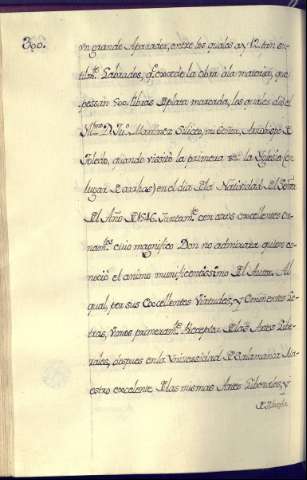 300.
vn grande Aparador, entre los quales ay 12. tan
tilm.te Labrados, q. excede la obra à la materia, que
pessan 500 libras de plata marcada, los quales dio el
Ill.mo D. Ju.o Martinez Siliceo, mi Señor, Arzobispo de
Toledo, quando visitò la primera vez la Yglesia (en
lugar de arrhas) en el dia de la Natividad del Señor
del Año de 1546. Juntam.te con otros excelentes or
nam.tos cuio magnifico Don no admirarà quien co
nociò el animo munificentissimo del Autor. Al
qual, por sus Excellentes Virtudes, y Eminentes Le
tras, vimos primeram.te Preceptor de las Artes Libe
rales, despues en la Universidad de Salamanca Ma
estro excelente de las mismas Artes Liberales, y